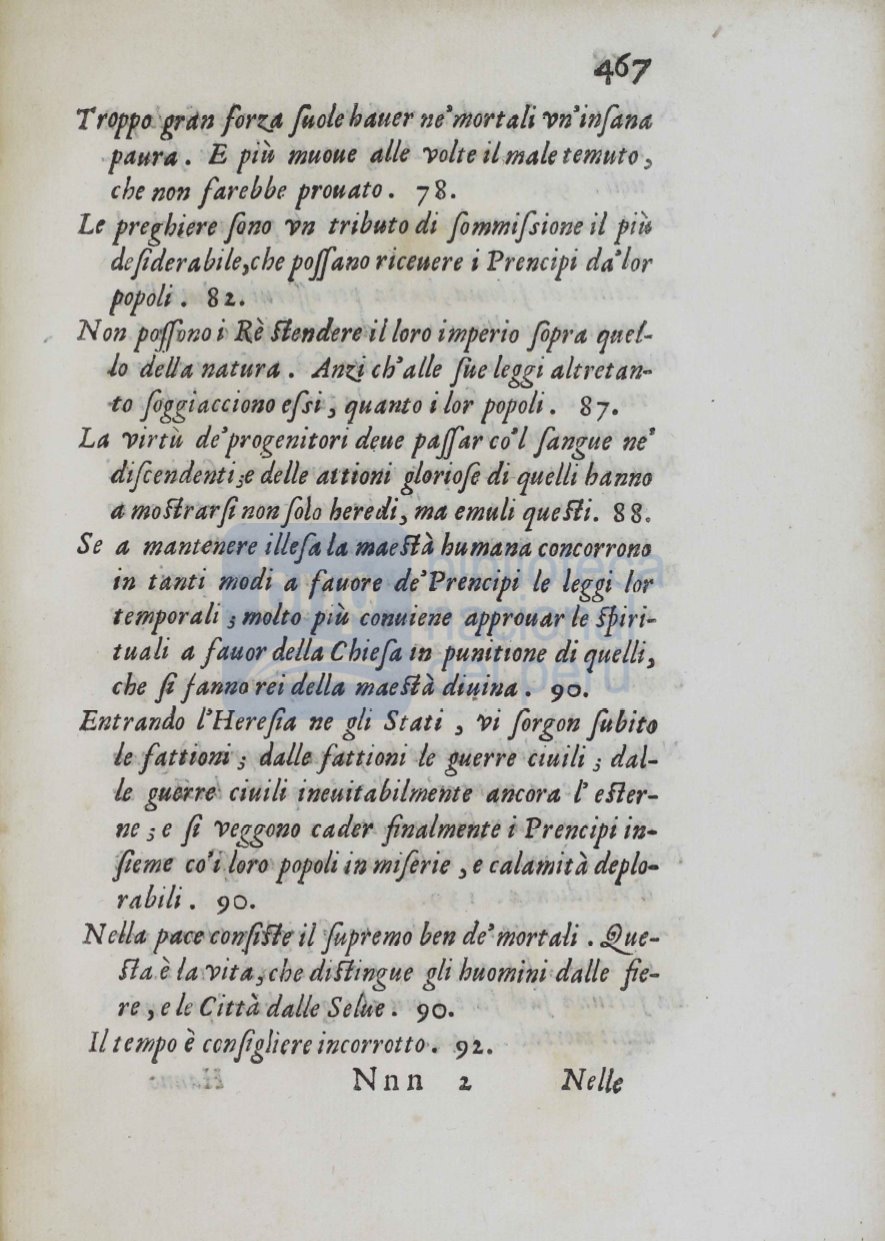 467
Troppo gran forza ſuole hauer ne' mortali vn' inſana
paura. E più muoue alle volte il male temuto,
che non farebbe prouato. 78.
Le preghiere ſono vn tributo di ſommiſsione il più
deſiderabile, che poſſano riceuere i Prencipi da' lor
popoli. 82.
Non poſſono i Rè ſtendere il loro imperio ſopra quel-
lo della natura. Anzi ch' alle ſue leggi altretan-
to ſoggiacciono eſsi, quanto i lor popoli. 87.
La virtù de' progenitori deue paſſar co'l ſangue ne'
diſcendenti; e delle attioni glorioſe di quelli hanno
a moſtrarſi non ſolo heredi, ma emuli queſti. 88.
Se a mantenere illeſa la maeſtà humana concorrono
in tanti modi a fauore de' Prencipi le leggi lor
temporali; molto più conuiene approuar le ſpiri-
tuali a fauor della Chieſa in punitione di quelli,
che ſi fanno rei della maeſtà diuina. 90.
Entrando l'Hereſia ne gli Stati, vi ſorgon ſubito
le fattioni; dalle fattioni le guerre ciuili; dal-
le guerre ciuili ineuitabilmente ancora l' eſter-
ne; e ſi veggono cader finalmente i Prencipi in-
ſieme co' i loro popoli in miſerie, e calamità deplo-
rabili. 90.
Nella pace conſiſte il ſupremo ben de' mortali. Que-
ſta è la vita, che diſtingue gli huomini dalle fie-
re, e le Città dalle Selue. 90.
Il tempo è conſigliere incorrotto. 92.
Nnn 2 Nelle
biblioteca
nacional
del perú